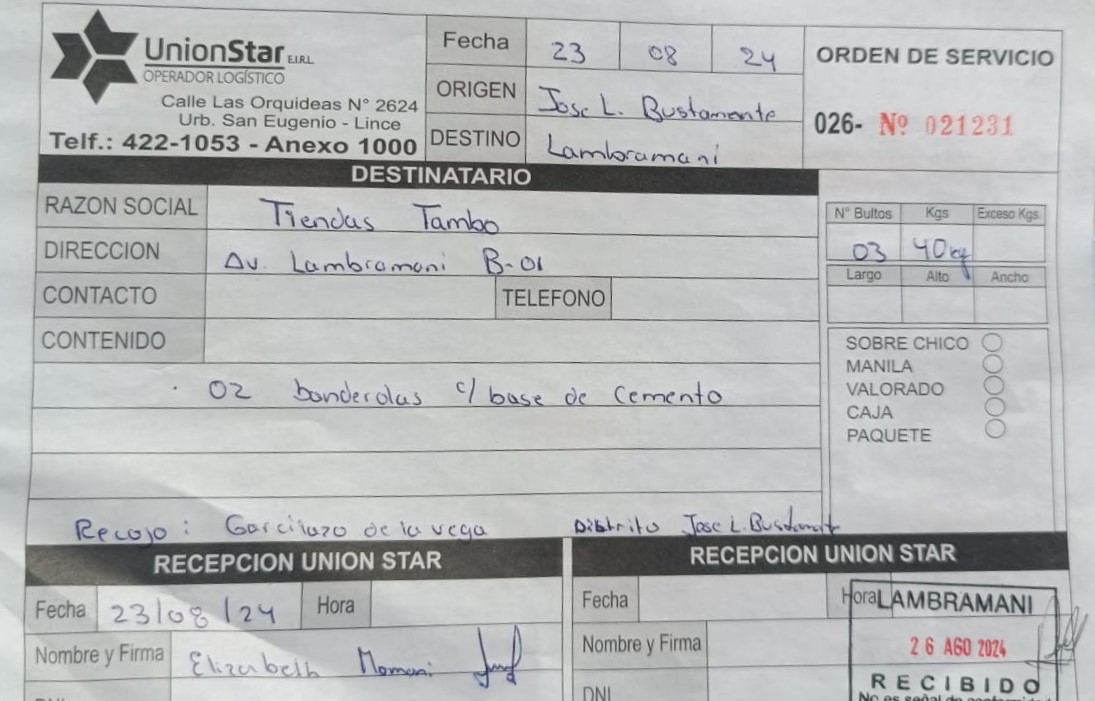 UnionStar E.I.R.L
OPERADOR LOGÍSTICO
Calle Las Orquideas N° 2624
Urb. San Eugenio - Lince
Telf.: 422-1053 - Anexo 1000
Fecha 23 08 24
ORIGEN Jose L. Bustamante
DESTINO Lambramani
ORDEN DE SERVICIO
026- Nº 021231
DESTINATARIO
RAZON SOCIAL Tiendas Tambo
DIRECCION Av. Lambramani B-01
CONTACTO TELEFONO
CONTENIDO
02 banderolas c/ base de Cemento
Recojo: Garcilazo de la vega Distrito Jose L. Bustamante
N° Bultos Kgs Exceso Kgs.
03 40kg
Largo Alto Ancho
SOBRE CHICO
MANILA
VALORADO
CAJA
PAQUETE
RECEPCION UNION STAR
Fecha 23/08/24 Hora
Nombre y Firma Elizabeth Mamani
RECEPCION UNION STAR
Fecha Hora
Nombre y Firma
DNI
LAMBRAMANI
26 AGO 2024
RECIBIDO